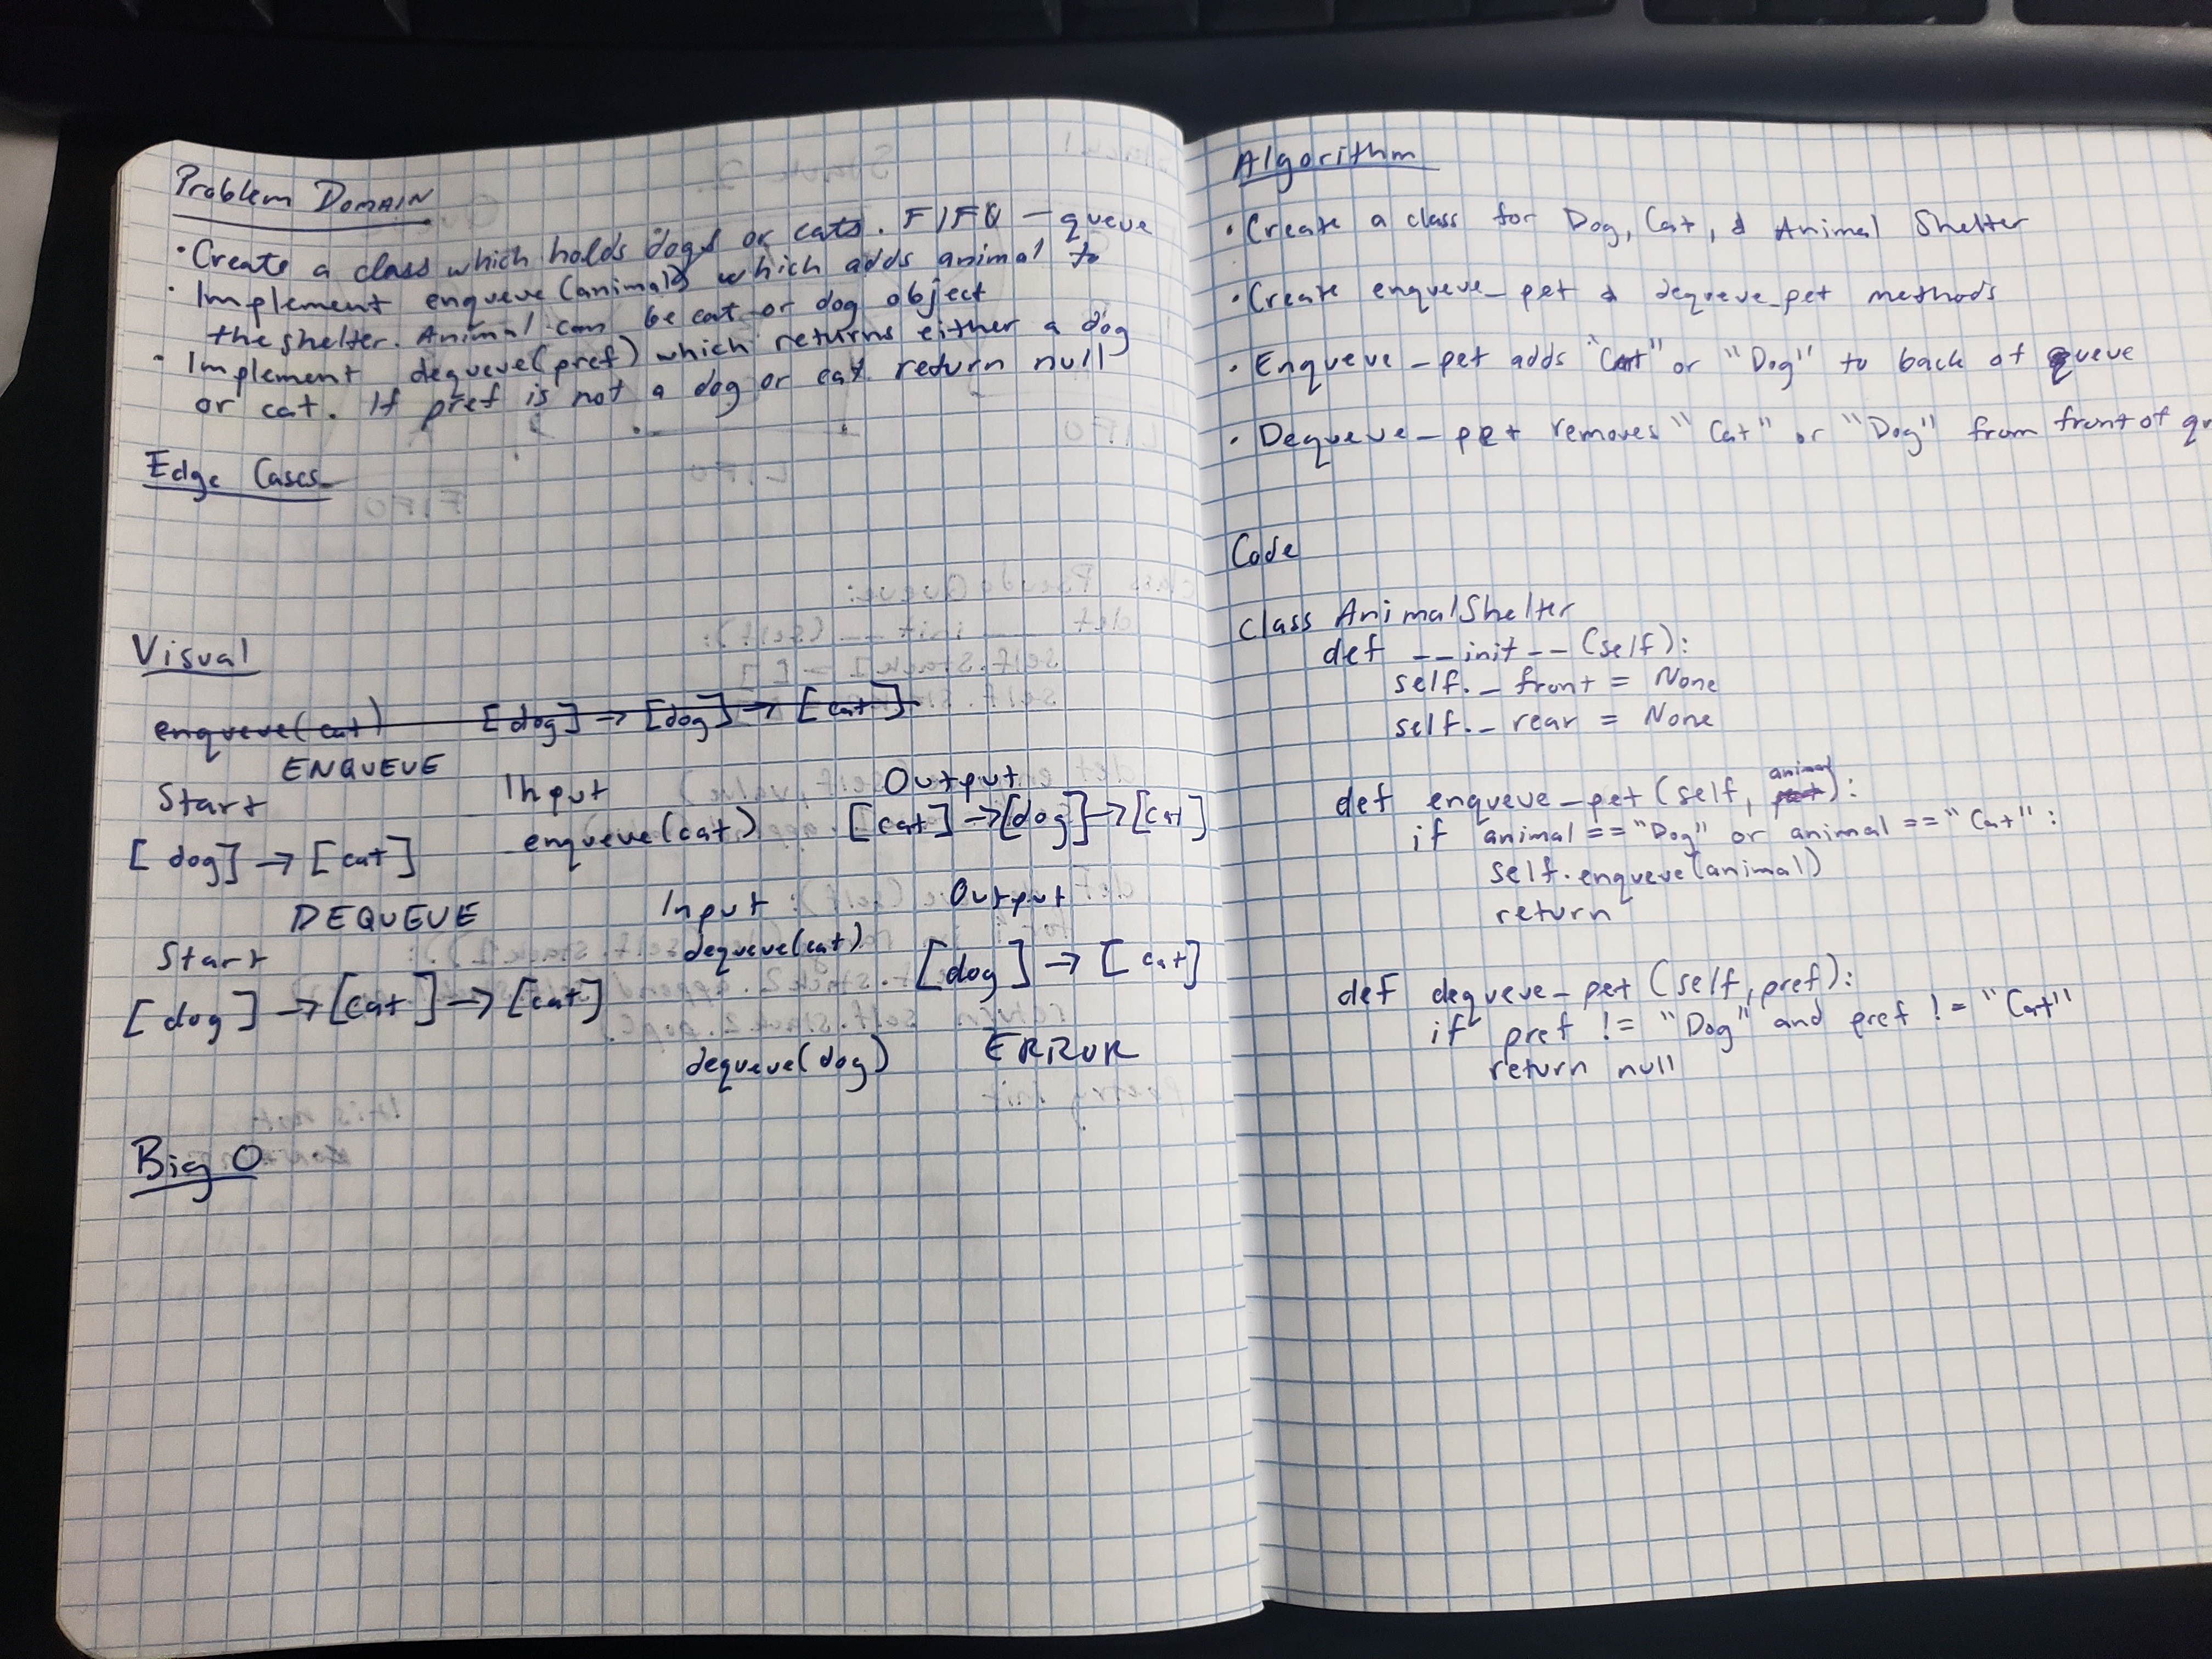 Problem Domain
· Create a class which holds dogs or cats. FIFO - queue
· Implement enqueue(animal) which adds animal to
the shelter. Animal can be cat or dog object
· Implement dequeue(pref) which returns either a dog
or cat. If pref is not a dog or cat return null
Edge Cases
Visual
enqueue(cat) [dog] → [dog] → [cat]
ENQUEUE
Start Input Output
[dog] → [cat] enqueue(cat) [cat] → [dog] → [cat]
DEQUEUE
Start Input Output
[dog] → [cat] → [cat] dequeue(cat) [dog] → [cat]
dequeue(dog) ERROR
Big O
Algorithm
· Create a class for Dog, Cat, & Animal Shelter
· Create enqueue_pet & dequeue_pet methods
· Enqueue_pet adds "Cat" or "Dog" to back of queue
· Dequeue_pet removes "Cat" or "Dog" from front of qu
Code
Class AnimalShelter
def __init__(self):
self._front = None
self._rear = None
def enqueue_pet(self, animal):
if animal == "Dog" or animal == "Cat":
self.enqueue(animal)
return
def dequeue_pet(self, pref):
if pref != "Dog" and pref != "Cat"
return null